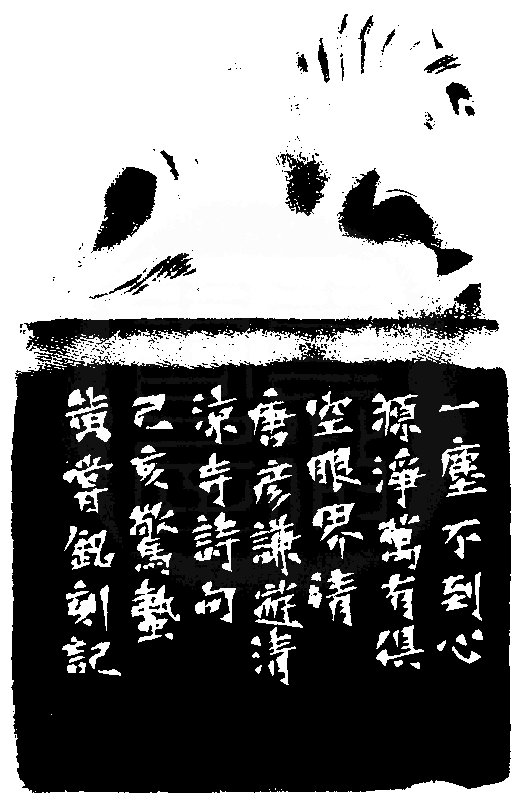 一塵不到心
源淨萬有俱
空眼界清
唐彥謙遊清
涼寺詩句
己亥驚蟄
黃嘗銳刻記